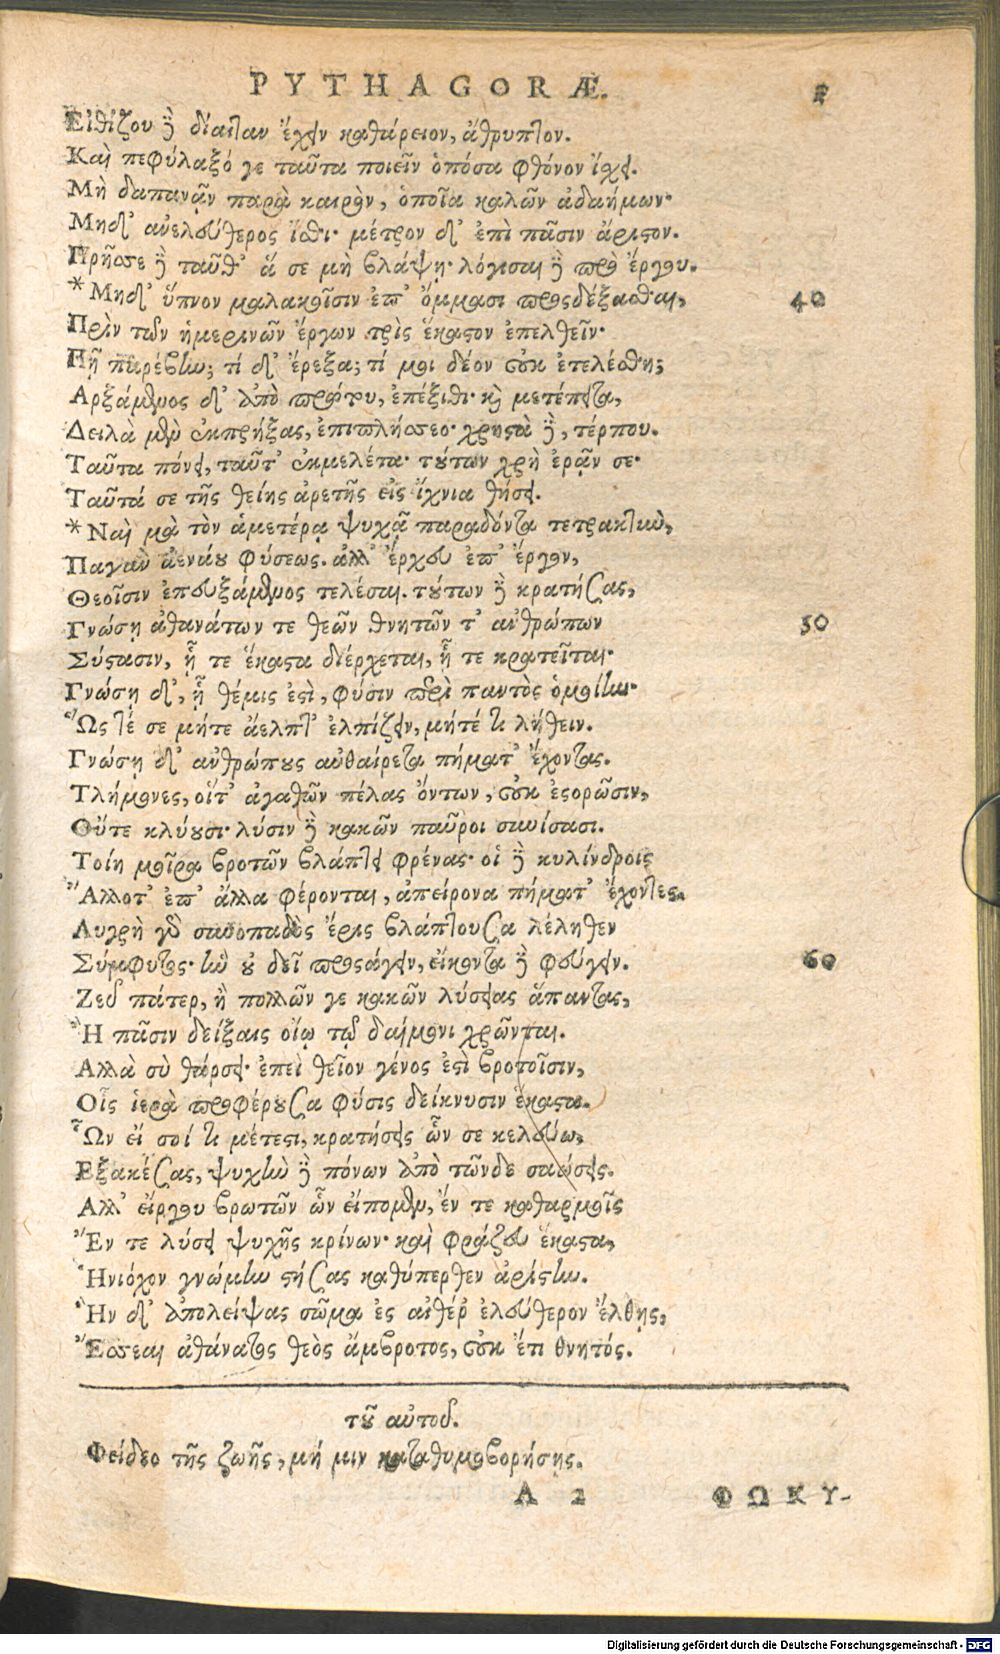 PYTHAGORÆ.
Εἰθίζου δὲ δίαιταν ἔχειν καθάρειον, ἄθρυπτον.
Καὶ πεφύλαξό γε ταῦτα ποιεῖν ὁπόσα φθόνον ἴχει.
Μὴ δαπανᾷν παρὰ καιρὸν, ὁποῖα καλῶν ἀδαήμων·
Μηδ' ἀνελεύθερος ἴσθι· μέτρον δ' ἐπὶ πᾶσιν ἄριστον.
Πρῆσσε δὲ ταῦθ' ἅ σε μὴ βλάψῃ· λόγισαι δὲ πρὸ ἔργου.
*Μηδ' ὕπνον μαλακοῖσιν ἐπ' ὄμμασι προςδέξασθαι, 40
Πρὶν τῶν ἡμερινῶν ἔργων τρὶς ἕκαστον ἐπελθεῖν·
Πῇ παρέβην; τί δ' ἔρεξα; τί μοι δέον οὐκ ἐτελέσθη;
Αρξάμενος δ' ἀπὸ πρώτου, ἐπέξιθι· καὶ μετέπειτα,
Δειλὰ μὲν ἐκπρήξας, ἐπιπλήσσεο· χρηστὰ δὲ, τέρπου.
Ταῦτα πόνει, ταῦτ' ἐκμελέτα· τούτων χρὴ ἐρᾷν σε·
Ταῦτά σε τῆς θείης ἀρετῆς εἰς ἴχνια θήσει.
*Ναὶ μὰ τὸν ἁμετέρᾳ ψυχᾷ παραδόντα τετρακτὺν,
Παγὰν ἀενάου φύσεως. ἀλλ' ἔρχου ἐπ' ἔργον,
Θεοῖσιν ἐπευξάμενος τελέσαι. τούτων δὲ κρατήσας,
Γνώσῃ ἀθανάτων τε θεῶν θνητῶν τ' ἀνθρώπων 50
Σύστασιν, ᾗ τε ἕκαστα διέρχεται, ᾗ τε κρατεῖται·
Γνώσῃ δ', ᾗ θέμις ἐστὶ, φύσιν περὶ παντὸς ὁμοίην·
Ὥς τέ σε μήτε ἄελπτ' ἐλπίζειν, μήτέ τι λήθειν.
Γνώσῃ δ' ἀνθρώπους αὐθαίρετα πήματ' ἔχοντας.
Τλήμονες, οἵτ' ἀγαθῶν πέλας ὄντων, οὐκ ἐσορῶσιν,
Οὔτε κλύουσι· λύσιν δὲ κακῶν παῦροι συνίσασι.
Τοίη μοῖρα βροτῶν βλάπτει φρένας· οἱ δὲ κυλίνδροις
Ἄλλοτ' ἐπ' ἄλλα φέρονται, ἀπείρονα πήματ' ἔχοντες.
Λυγρὴ γὰρ συνοπαδὸς ἔρις βλάπτουσα λέληθεν
Σύμφυτος· ἣν οὐ δεῖ προςάγειν, εἴκοντα δὲ φεύγειν. 60
Ζεῦ πάτερ, ἢ πολλῶν γε κακῶν λύσειας ἅπαντας,
Ἢ πᾶσιν δείξαις οἵῳ τῷ δαίμονι χρῶνται.
Αλλὰ σὺ θάρσει· ἐπεὶ θεῖον γένος ἐστὶ βροτοῖσιν,
Οἷς ἱερὰ προφέρουσα φύσις δείκνυσιν ἕκαστα.
Ὧν εἴ σοί τι μέτεστι, κρατήσεις ὧν σε κελεύω,
Εξακέσας, ψυχὴν δὲ πόνων ἀπὸ τῶνδε σαώσεις.
Αλλ' εἴργου βρωτῶν ὧν εἴπομεν, ἔν τε καθαρμοῖς
Ἔν τε λύσει ψυχῆς κρίνων· καὶ φράζευ ἕκαστα,
Ἡνιόχον γνώμην στήσας καθύπερθεν ἀρίστην.
Ἢν δ' ἀπολείψας σῶμα ἐς αἰθέρ' ἐλεύθερον ἔλθῃς,
Ἔσσεαι ἀθάνατος θεὸς ἄμβροτος, οὐκ ἔτι θνητός.
τοῦ αὐτοῦ.
Φείδεο τῆς ζωῆς, μή μιν καταθυμοβορήσῃς.
A 2 ΦΩΚΥ-
Digitalisierung gefördert durch die Deutsche Forschungsgemeinschaft - DFG